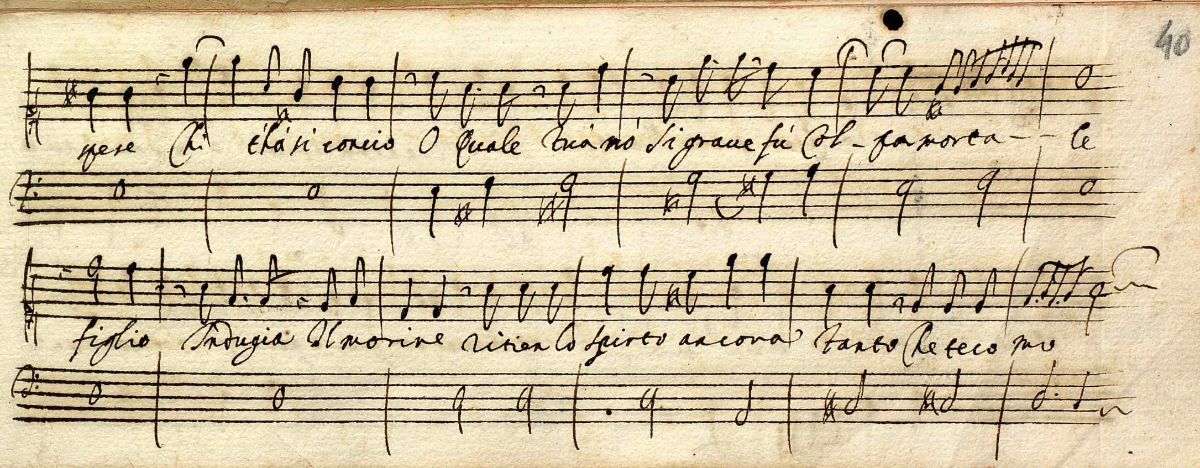 40
spese Chi t'hà si concio O Quale tua nó si graue fú Col - pa morta - - le
figlio Indugia Il morire ritien lo spirto ancora tanto Che teco mo